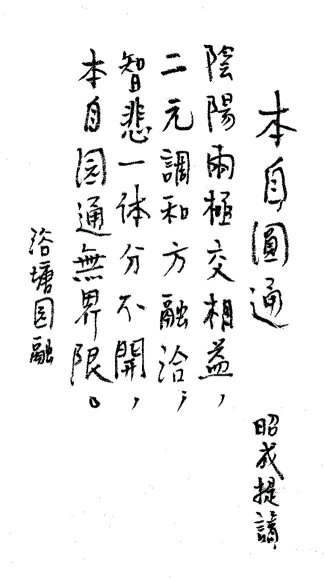 本自圓通
昭成提議
陰陽兩極交相益，
二元調和方融洽；
智悲一体分不開，
本自圆通無界限。
洛塘圆融